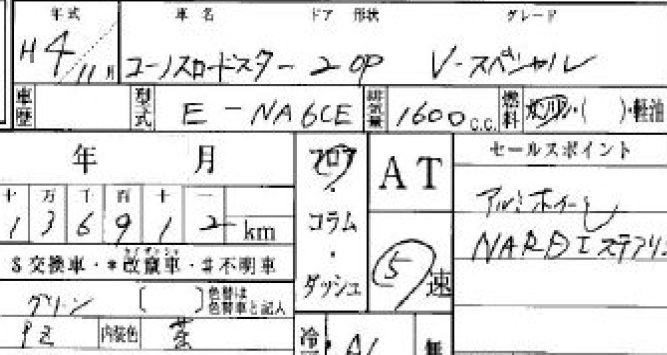 年式 車名 ドア 形状 グレード
H4/11月 ユーノスロードスター 2 OP V-スペシャル
車歴 型式 E-NA6CE 排気量 1600c.c. 燃料 ガソリン・( )・軽油
年 月 フロア AT セールスポイント
十 万 千 百 十 一
1 3 6 9 1 2 km ・コラム アルミホイール
NARDIステアリン
$交換車・*改竄車・#不明車 ・ダッシュ 5速
グリーン 〔 〕色替は色替車と記入
PZ 内装色 茶 冷 A/ 無